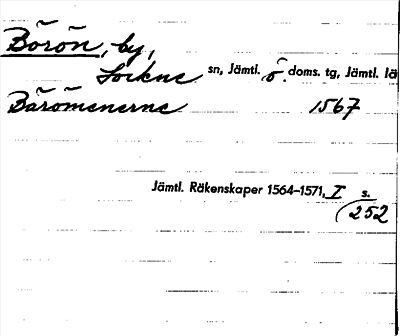 Börön, by,
Lockne sn, Jämtl. ö. doms. tg, Jämtl. lä
Bäromenerne 1567
Jämtl. Räkenskaper 1564–1571, I s.
252